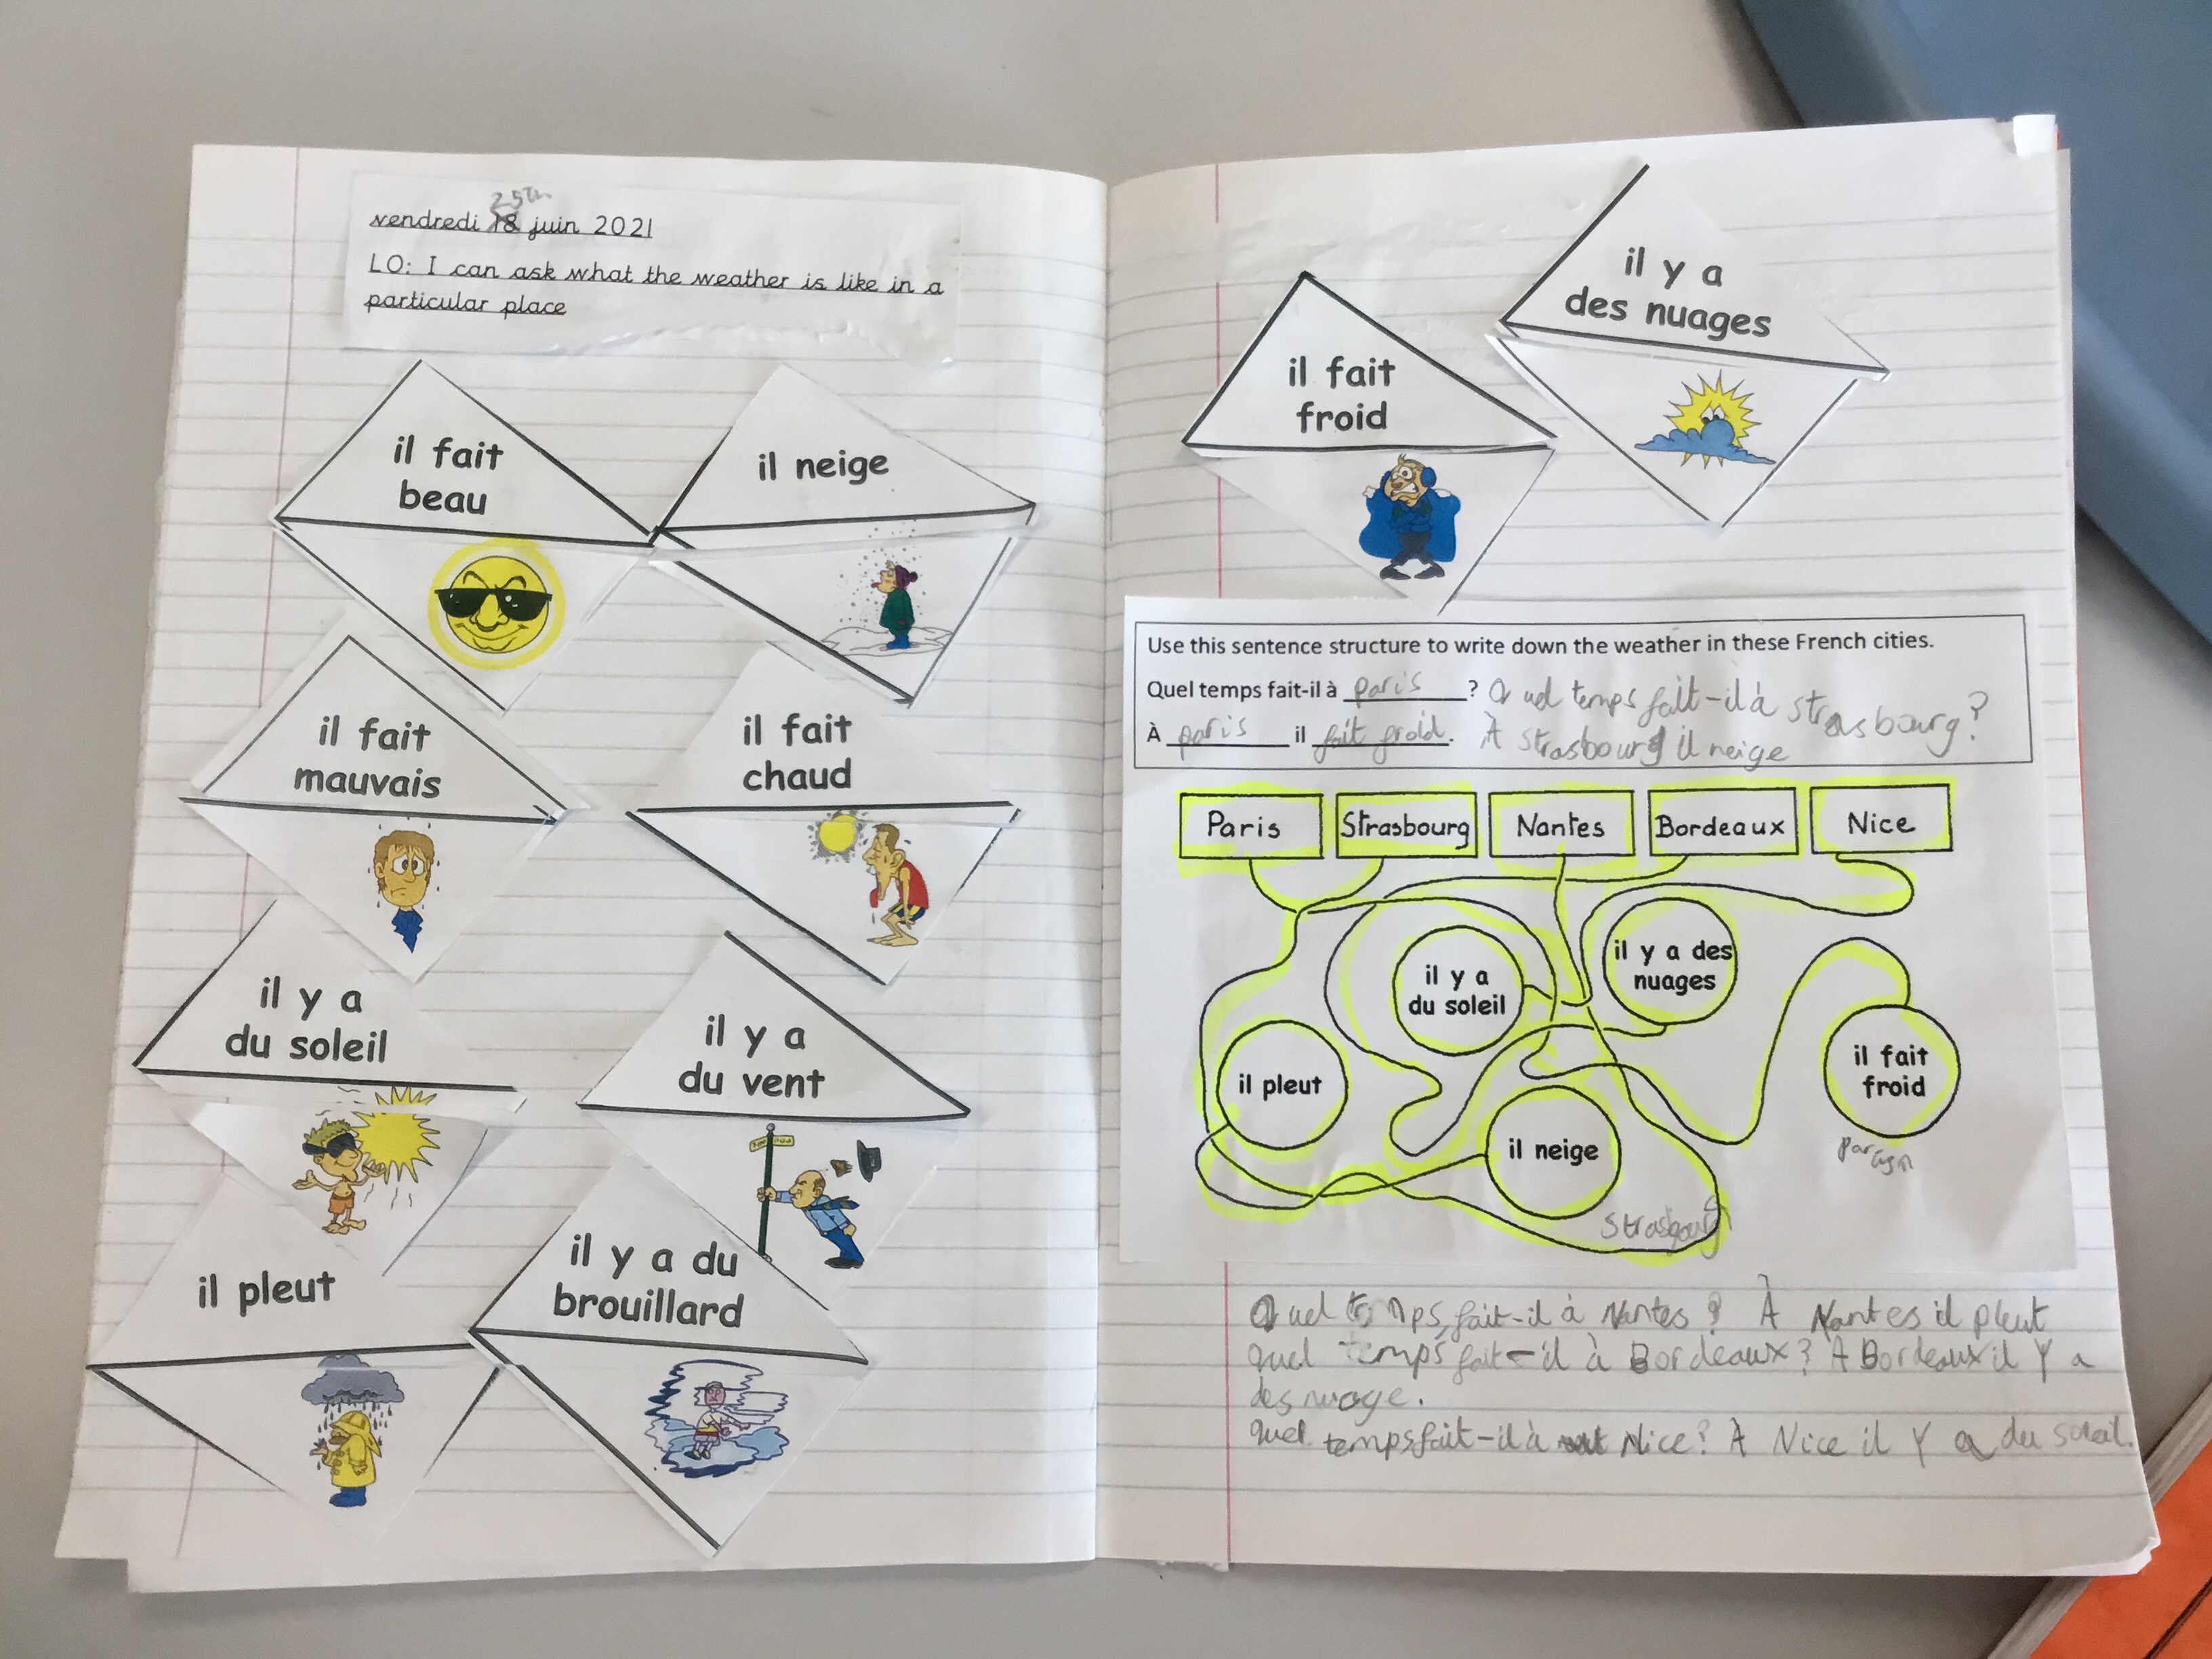 25th
vendredi 18 juin 2021
LO: I can ask what the weather is like in a
particular place
il fait
beau
il neige
il fait
mauvais
il fait
chaud
il y a
du soleil
il y a
du vent
il pleut
il y a du
brouillard
il y a
des nuages
il fait
froid
Use this sentence structure to write down the weather in these French cities.
Quel temps fait-il à paris ? Quel temps fait-il à strasbourg?
À paris il fait froid. À strasbourg il neige
Paris Strasbourg Nantes Bordeaux Nice
il y a des
nuages
il y a
du soleil
il fait
froid
il pleut
il neige
Strasbourg
Quel temps fait-il à Nantes? À Nantes il pleut
quel temps fait-il à Bordeaux? A Bordeaux il Y a
des nuage.
quel temps fait-il à Nice? À Nice il Y a du soleil.